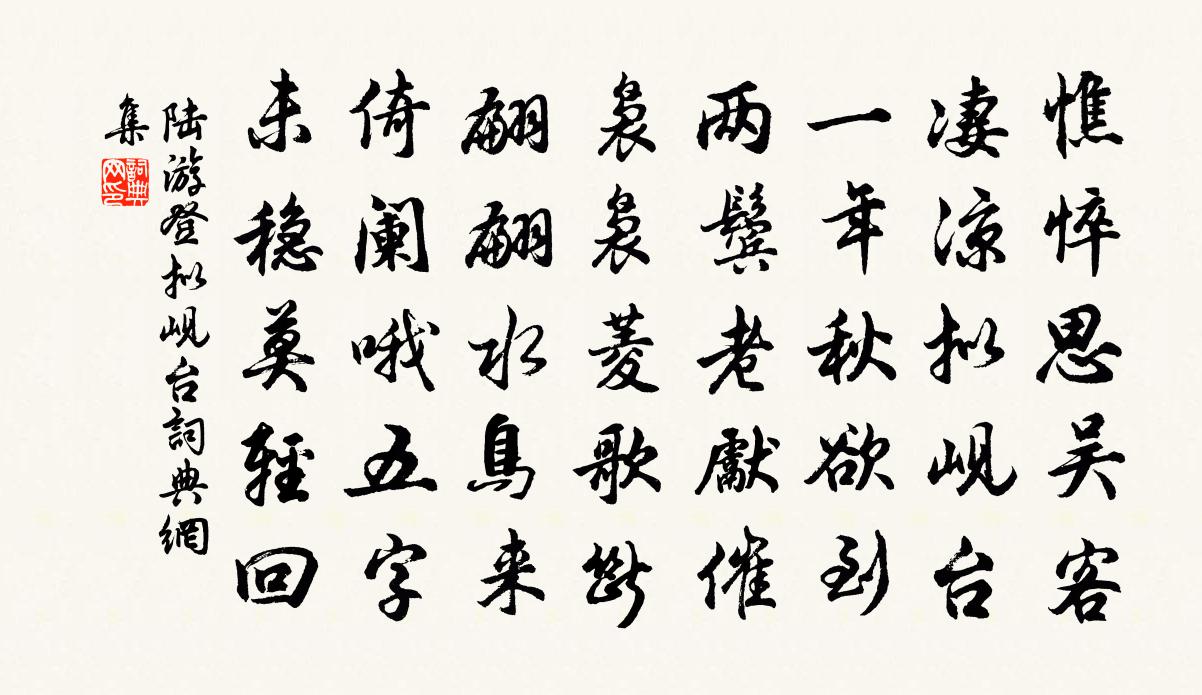 憔悴思吴客
凄凉拟岘台
一年秋欲到
两鬓老獻催
袅袅菱歌断
翩翩水鳥来
倚阑哦五字
未稳莫輕回
陆游登拟岘台詞典網
集
詞典网印